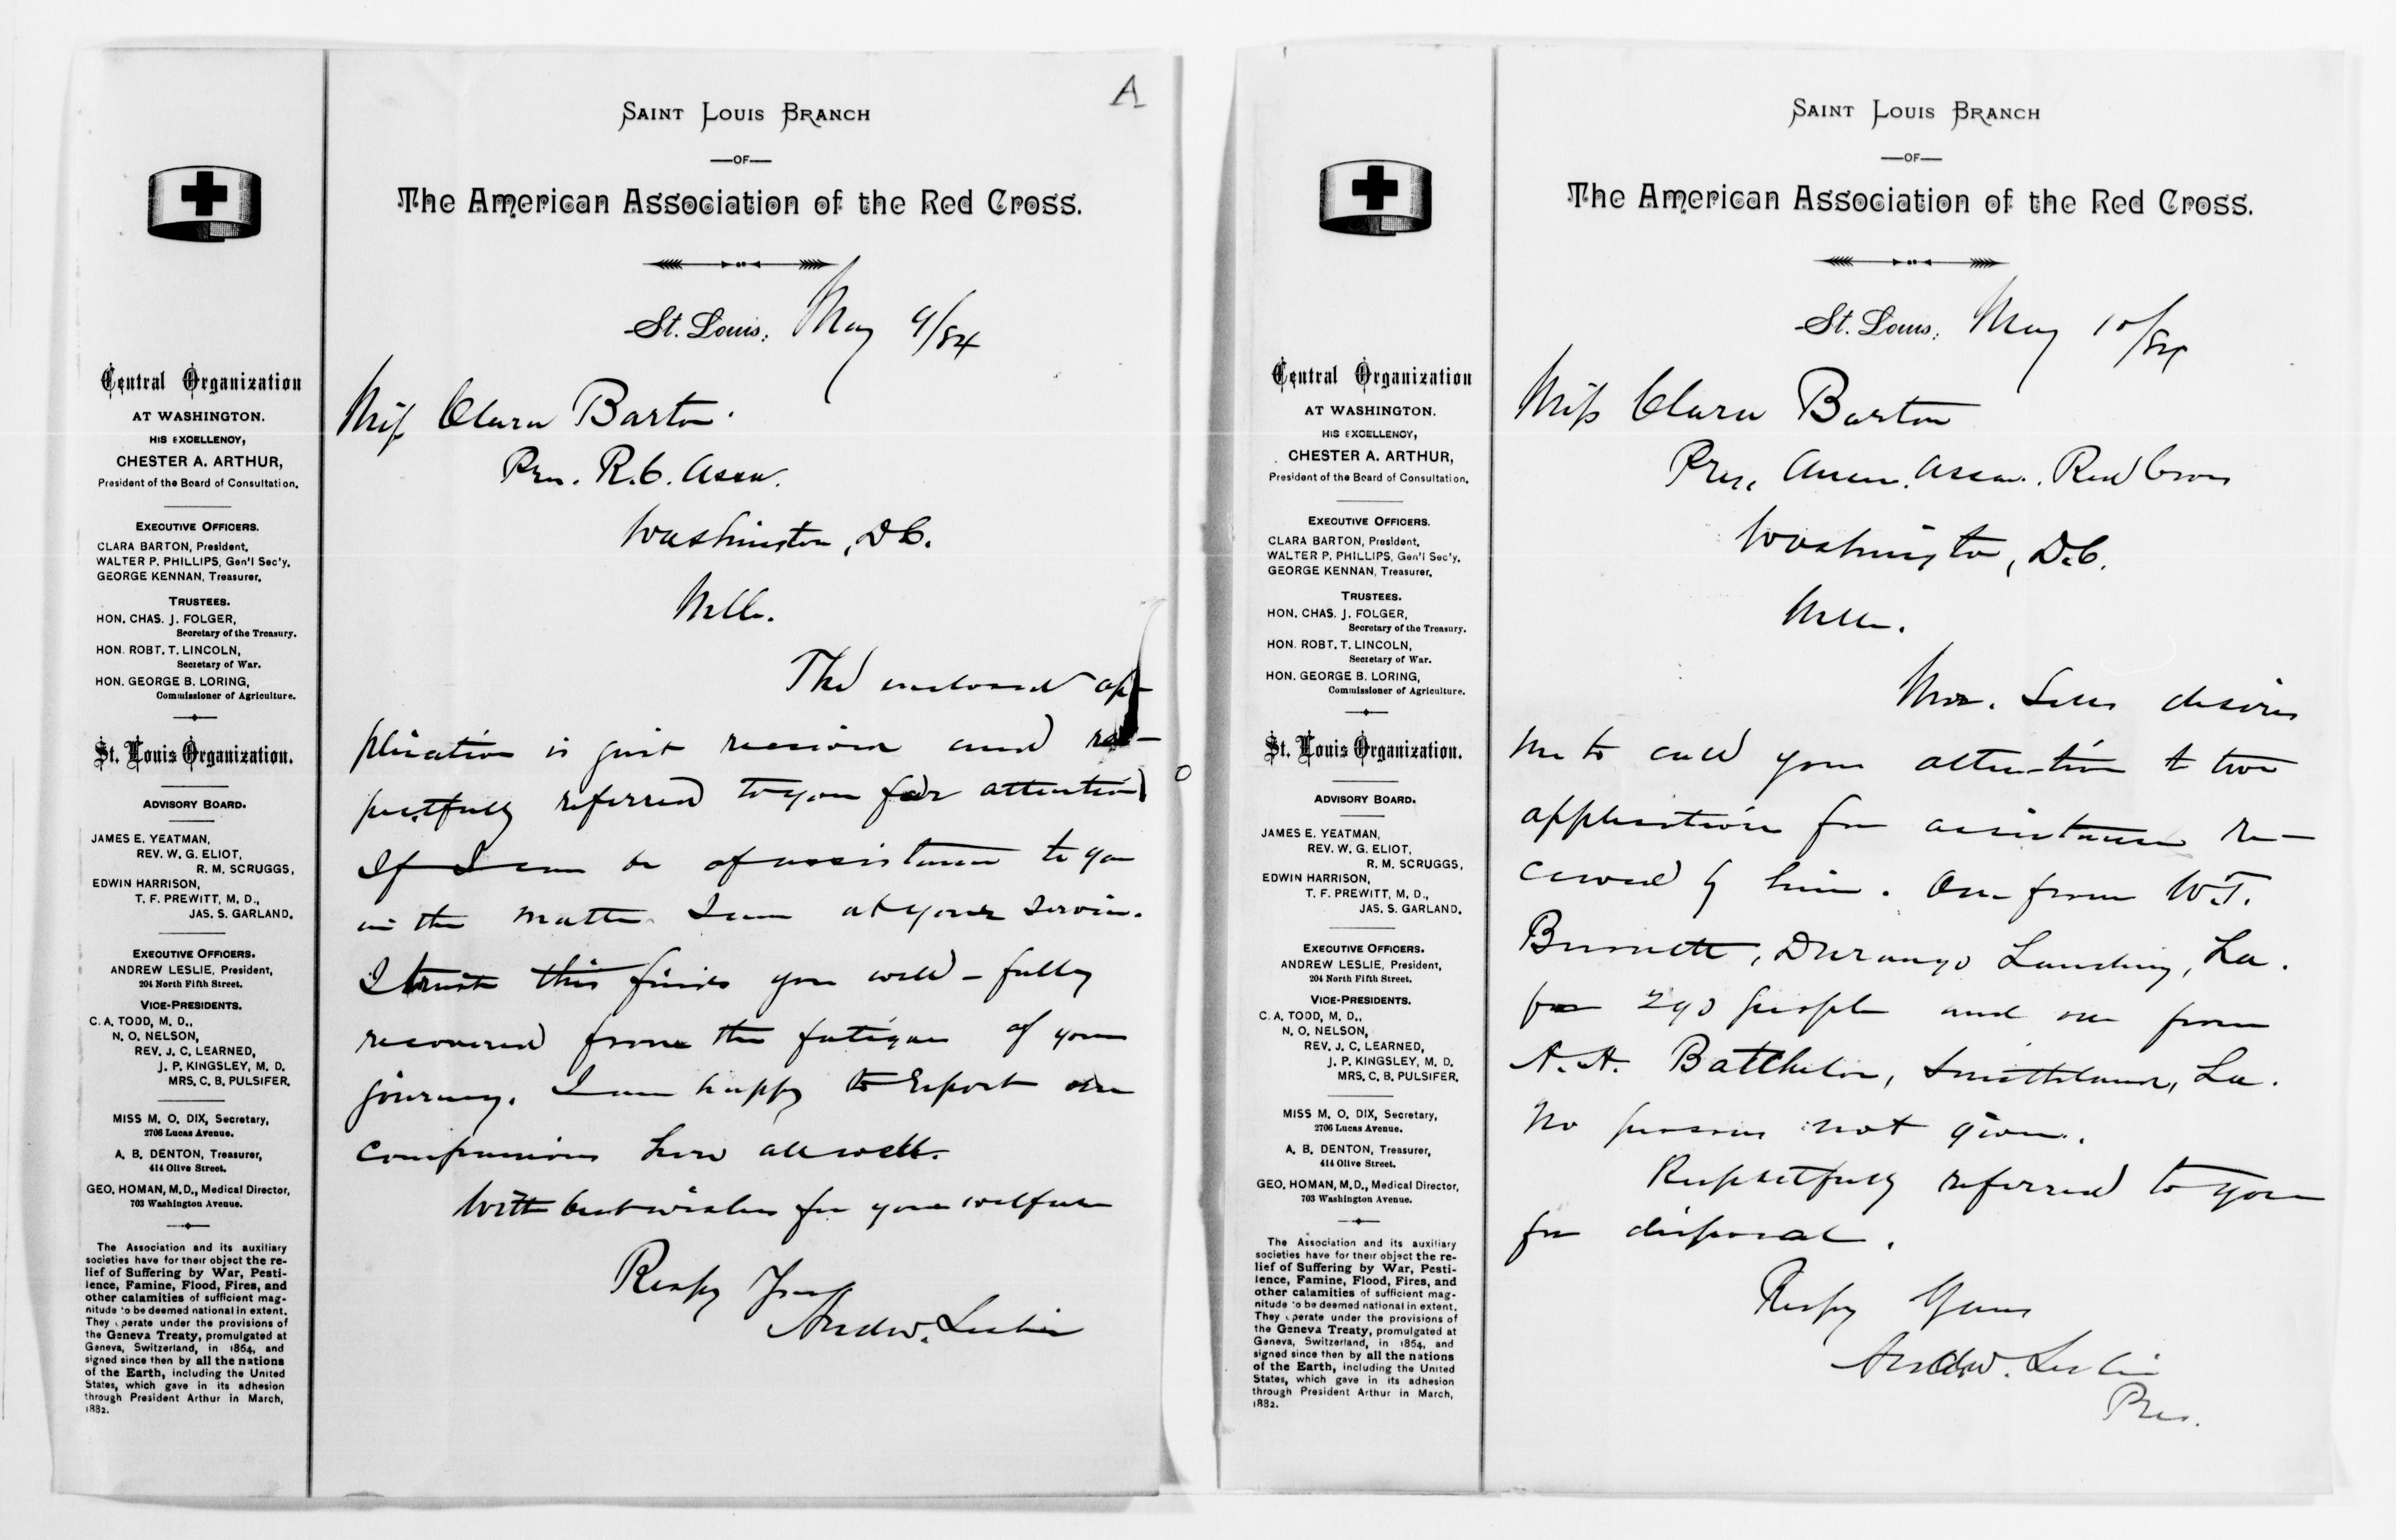 A
SAINT LOUIS BRANCH
—OF—
The American Association of the Red Cross.
St. Louis, May 9/84
Central Organization
AT WASHINGTON.
HIS EXCELLENCY,
CHESTER A. ARTHUR,
President of the Board of Consultation.
EXECUTIVE OFFICERS.
CLARA BARTON, President.
WALTER P. PHILLIPS, Gen'l Sec'y.
GEORGE KENNAN, Treasurer.
TRUSTEES.
HON. CHAS. J. FOLGER,
Secretary of the Treasury.
HON. ROBT. T. LINCOLN,
Secretary of War.
HON. GEORGE B. LORING,
Commissioner of Agriculture.
St. Louis Organization.
ADVISORY BOARD.
JAMES E. YEATMAN,
REV. W. G. ELIOT,
R. M. SCRUGGS,
EDWIN HARRISON,
T. F. PREWITT, M. D.,
JAS. S. GARLAND.
EXECUTIVE OFFICERS.
ANDREW LESLIE, President,
204 North Fifth Street.
VICE-PRESIDENTS.
C. A. TODD, M. D.,
N. O. NELSON,
REV. J. C. LEARNED,
J. P. KINGSLEY, M. D.
MRS. C. B. PULSIFER.
MISS M. O. DIX, Secretary,
2706 Lucas Avenue.
A. B. DENTON, Treasurer,
414 Olive Street.
GEO. HOMAN, M.D., Medical Director,
703 Washington Avenue.
The Association and its auxiliary
societies have for their object the re-
lief of Suffering by War, Pesti-
lence, Famine, Flood, Fires, and
other calamities of sufficient mag-
nitude to be deemed national in extent.
They operate under the provisions of
the Geneva Treaty, promulgated at
Geneva, Switzerland, in 1864, and
signed since then by all the nations
of the Earth, including the United
States, which gave in its adhesion
through President Arthur in March,
1882.
Miss Clara Barton.
Pres. R.C. Assn.
Washington, D.C.
Mlle.
The enclosed ap-
plication is just received and res-
pectfully referred to you for attention
If I can be of assistance to you
in the matter I am at your service.
I trust this finds you well - fully
recovered from the fatigue of your
journey. I am happy to report our
companions here all well.
With best wishes for your welfare
Respy Yours
Andw. Leslie
SAINT LOUIS BRANCH
—OF—
The American Association of the Red Cross.
St. Louis, May 10/84
Central Organization
AT WASHINGTON.
HIS EXCELLENCY,
CHESTER A. ARTHUR,
President of the Board of Consultation.
EXECUTIVE OFFICERS.
CLARA BARTON, President.
WALTER P. PHILLIPS, Gen'l Sec'y.
GEORGE KENNAN, Treasurer.
TRUSTEES.
HON. CHAS. J. FOLGER,
Secretary of the Treasury.
HON. ROBT. T. LINCOLN,
Secretary of War.
HON. GEORGE B. LORING,
Commissioner of Agriculture.
St. Louis Organization.
ADVISORY BOARD.
JAMES E. YEATMAN,
REV. W. G. ELIOT,
R. M. SCRUGGS,
EDWIN HARRISON,
T. F. PREWITT, M. D.,
JAS. S. GARLAND.
EXECUTIVE OFFICERS.
ANDREW LESLIE, President,
204 North Fifth Street.
VICE-PRESIDENTS.
C. A. TODD, M. D.,
N. O. NELSON,
REV. J. C. LEARNED,
J. P. KINGSLEY, M. D.
MRS. C. B. PULSIFER.
MISS M. O. DIX, Secretary,
2706 Lucas Avenue.
A. B. DENTON, Treasurer,
414 Olive Street.
GEO. HOMAN, M.D., Medical Director,
703 Washington Avenue.
The Association and its auxiliary
societies have for their object the re-
lief of Suffering by War, Pesti-
lence, Famine, Flood, Fires, and
other calamities of sufficient mag-
nitude to be deemed national in extent.
They operate under the provisions of
the Geneva Treaty, promulgated at
Geneva, Switzerland, in 1864, and
signed since then by all the nations
of the Earth, including the United
States, which gave in its adhesion
through President Arthur in March,
1882.
Miss Clara Barton
Pres. Amer. Assn. Red Cross
Washington, D.C.
Mlle.
Mr. desires
me to call your attention to two
applications for assistance re-
ceived by him. One from W.T.
Burnett, Durango Landing, La.
for 290 people and one from
A.A. Batchelor, Smithland, La.
No persons not given.
Respectfully referred to you
for disposal.
Respy Yours
Andw. Leslie
Pres.